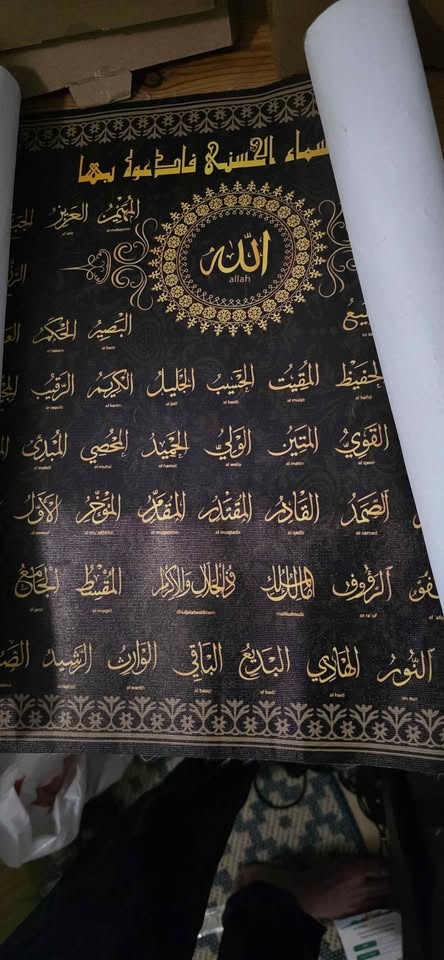 سماء الحسنى فادعوه بها
المهيمن العزيز
al muhaymin
الله
allah
البصير الحكم
الحفيظ المقيت الحسيب الجليل الكريم الرقيب
al hafid al muqit al hasib al jalil al karim ar raqib
القوي المتين الولي الحميد المحصي المبدئ
al qawi al matin al waliy al hamid al muhsi al mubdi
الصمد القادر المقتدر المقدم المؤخر الأول
as samad al qadir al muqtadir
الرؤوف مالك الملك ذو الجلال والإكرام المقسط الجامع
ar ra'uf malikulmulk dhuljalalwalikram al muqsit al jami
النور الهادي البديع الباقي الوارث الرشيد
an nur al hadi al badi al baqi al warith ar rashid